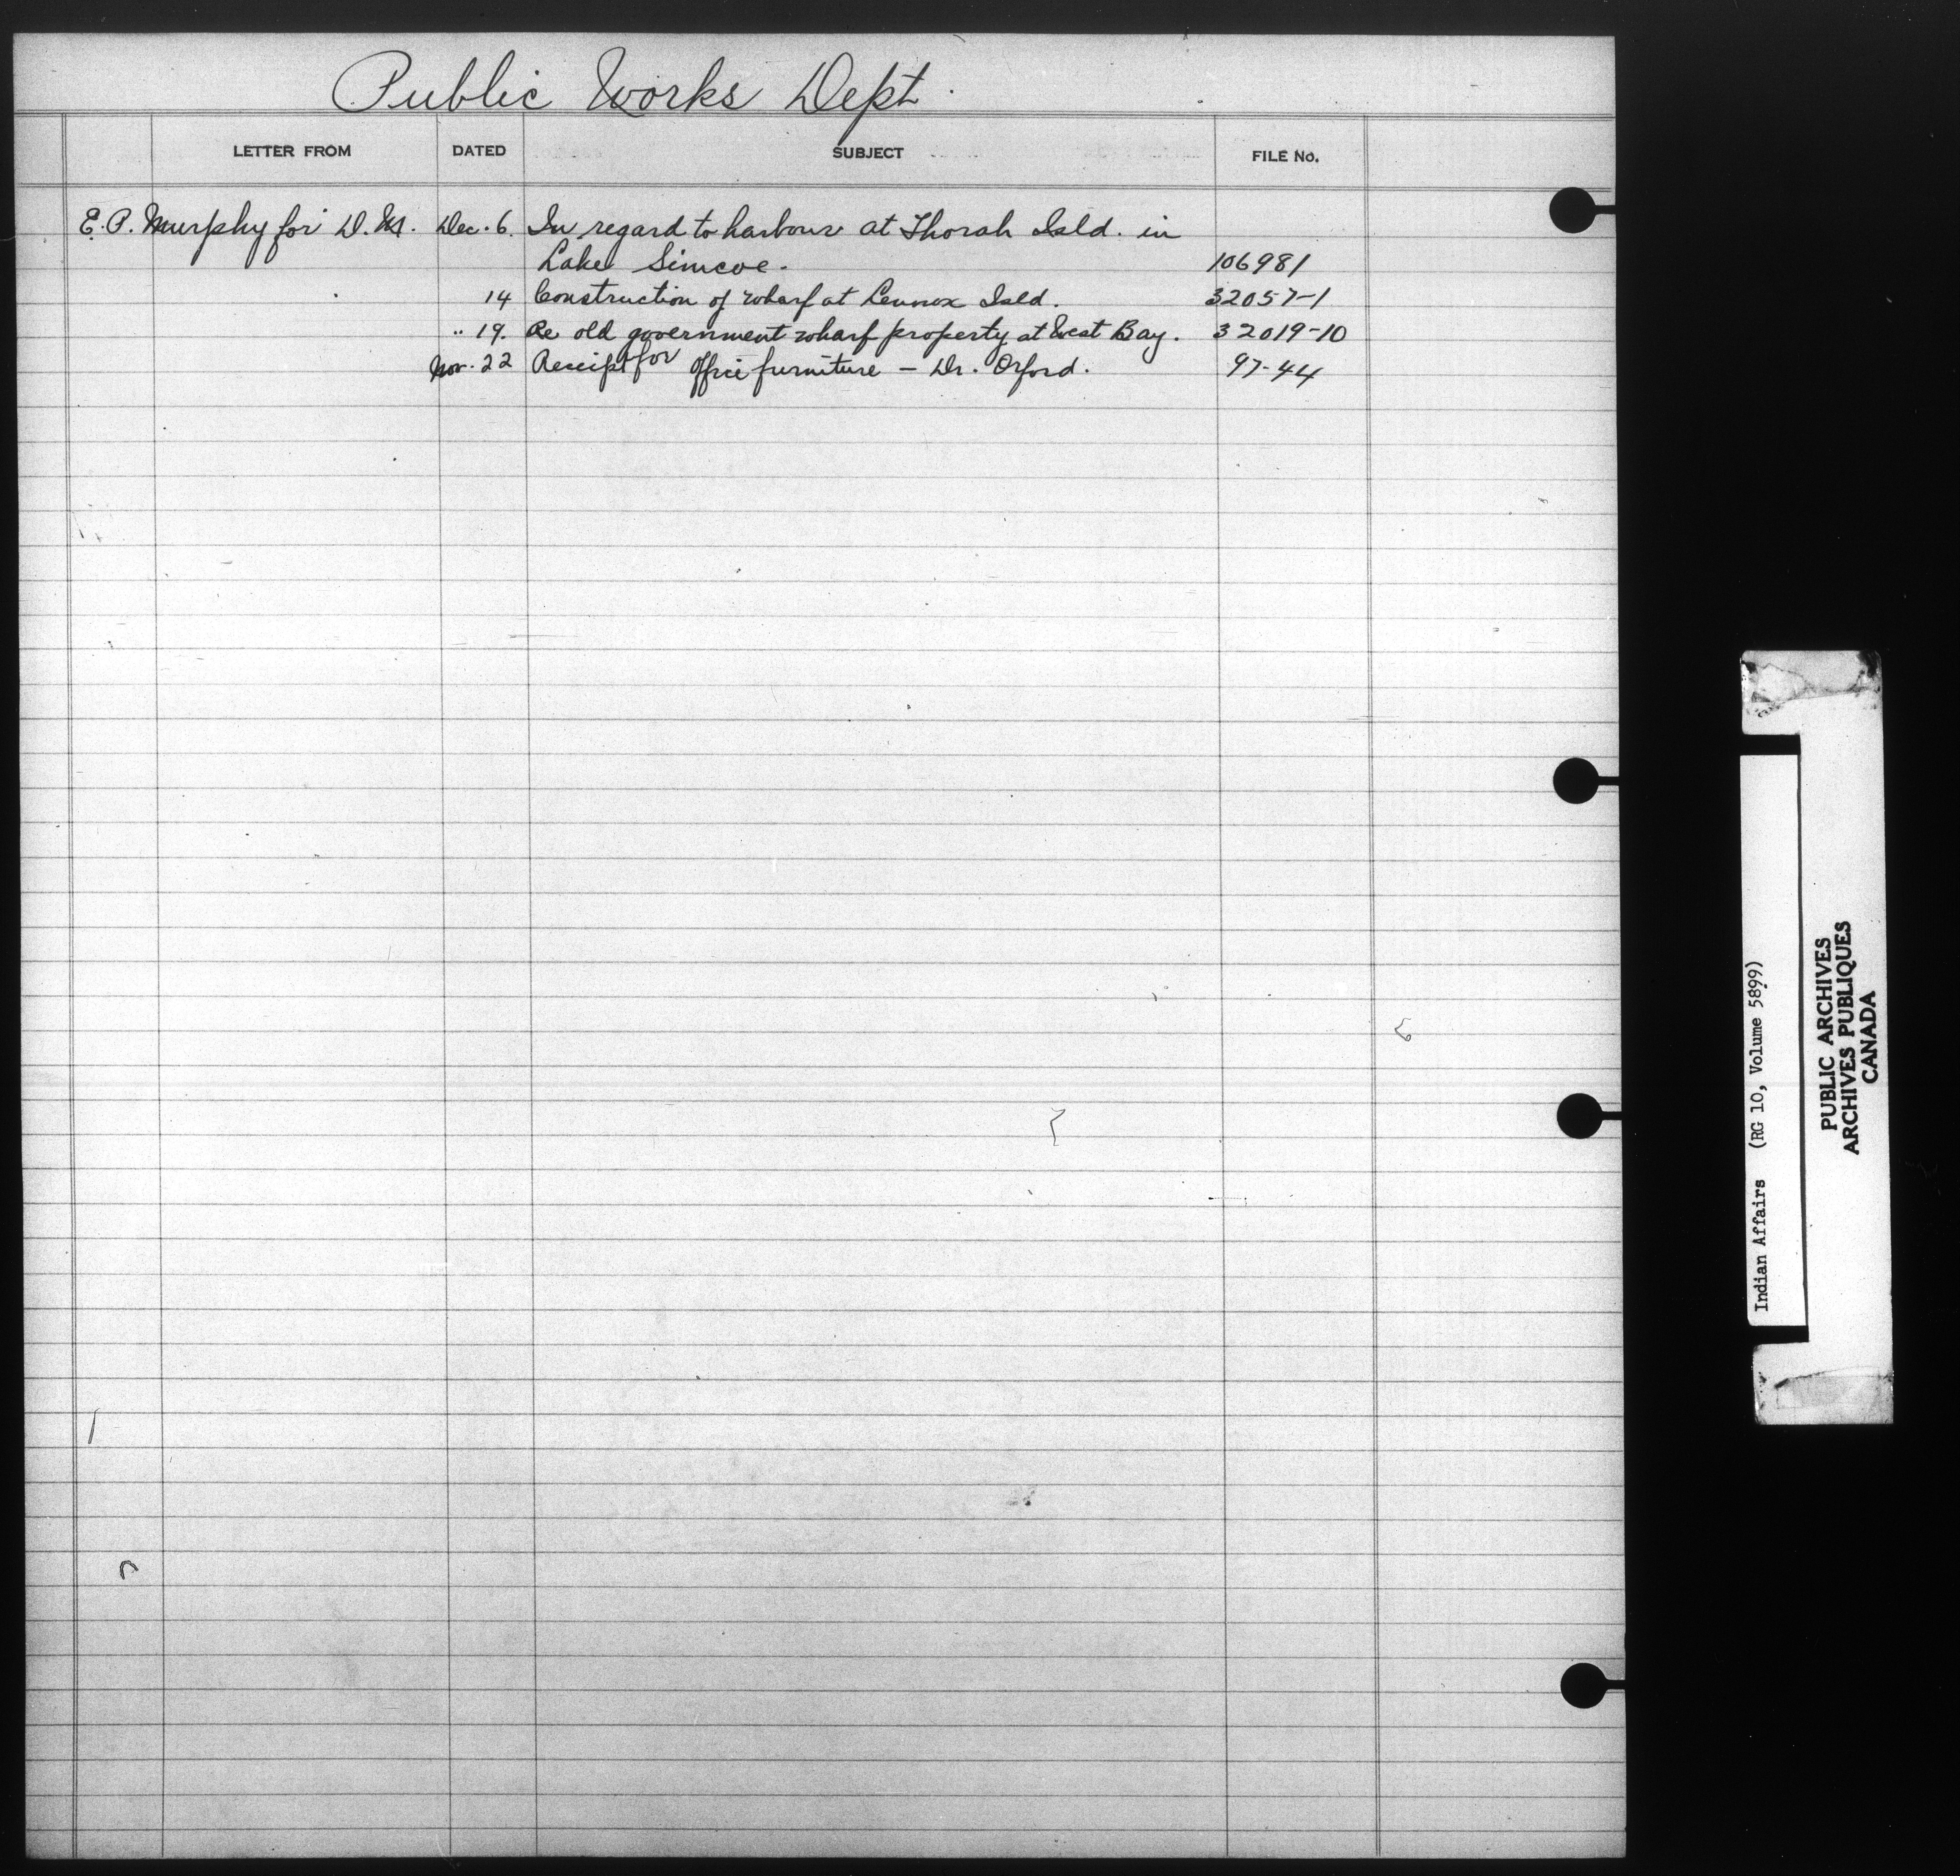 Public Works Dept.
LETTER FROM DATED SUBJECT FILE No.
E. P. Murphy for D. M. Dec. 6. In regard to harbour at Thorah Isld. in
Lake Simcoe. 106981
14 Construction of wharf at Lennox Isld. 32057-1
" 19. Re old government wharf property at West Bay. 32019-10
Nov. 22 Receipt for office furniture - Dr. Orford. 97-44
Indian Affairs (RG 10, Volume 5899)
PUBLIC ARCHIVES
ARCHIVES PUBLIQUES
CANADA